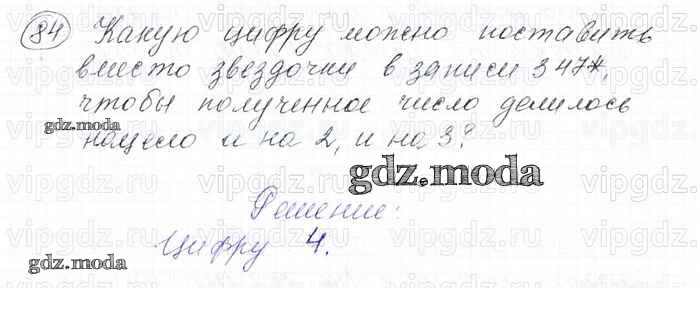 84) Какую цифру можно поставить
вместо звездочки в записи 347*,
чтобы полученное число делилось
нацело и на 2, и на 3?
gdz.moda
gdz.moda
Решение:
Цифру 4.
gdz.moda